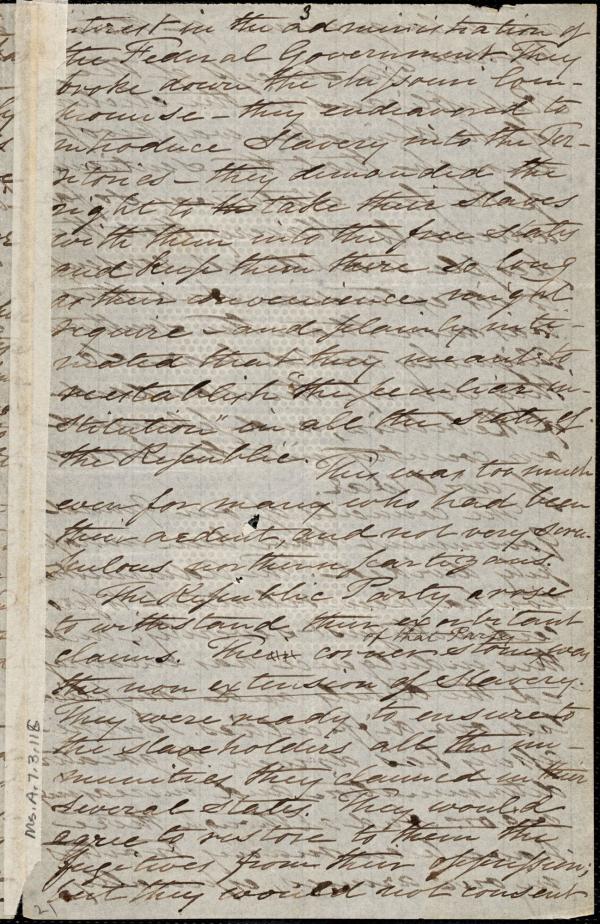 3
interest in the administration of
the Federal Government. They
broke down the Missouri Com-
promise – they endeavored to
introduce Slavery into the Ter-
ritories – they demanded the
right to take their slaves
with them into the free states
and keep them there so long
as their convenience might
require – and plainly inti-
mated that they meant to
reestablish "the peculiar in-
stitution" in all the States of
the Republic. This was too much
even for many who had been
their ardent, and not very scru-
pulous northern partizans.
The Republic Party arose
to withstand their exorbitant
of that Party
claims. The corner stone was
the non extension of Slavery.
They were ready to ensure to
the slaveholders all the im-
munities they claimed in their
several States. They would
agree to restore to them the
fugitives from their oppression;
but they would not consent
Ms. A. 7. 3. 11B